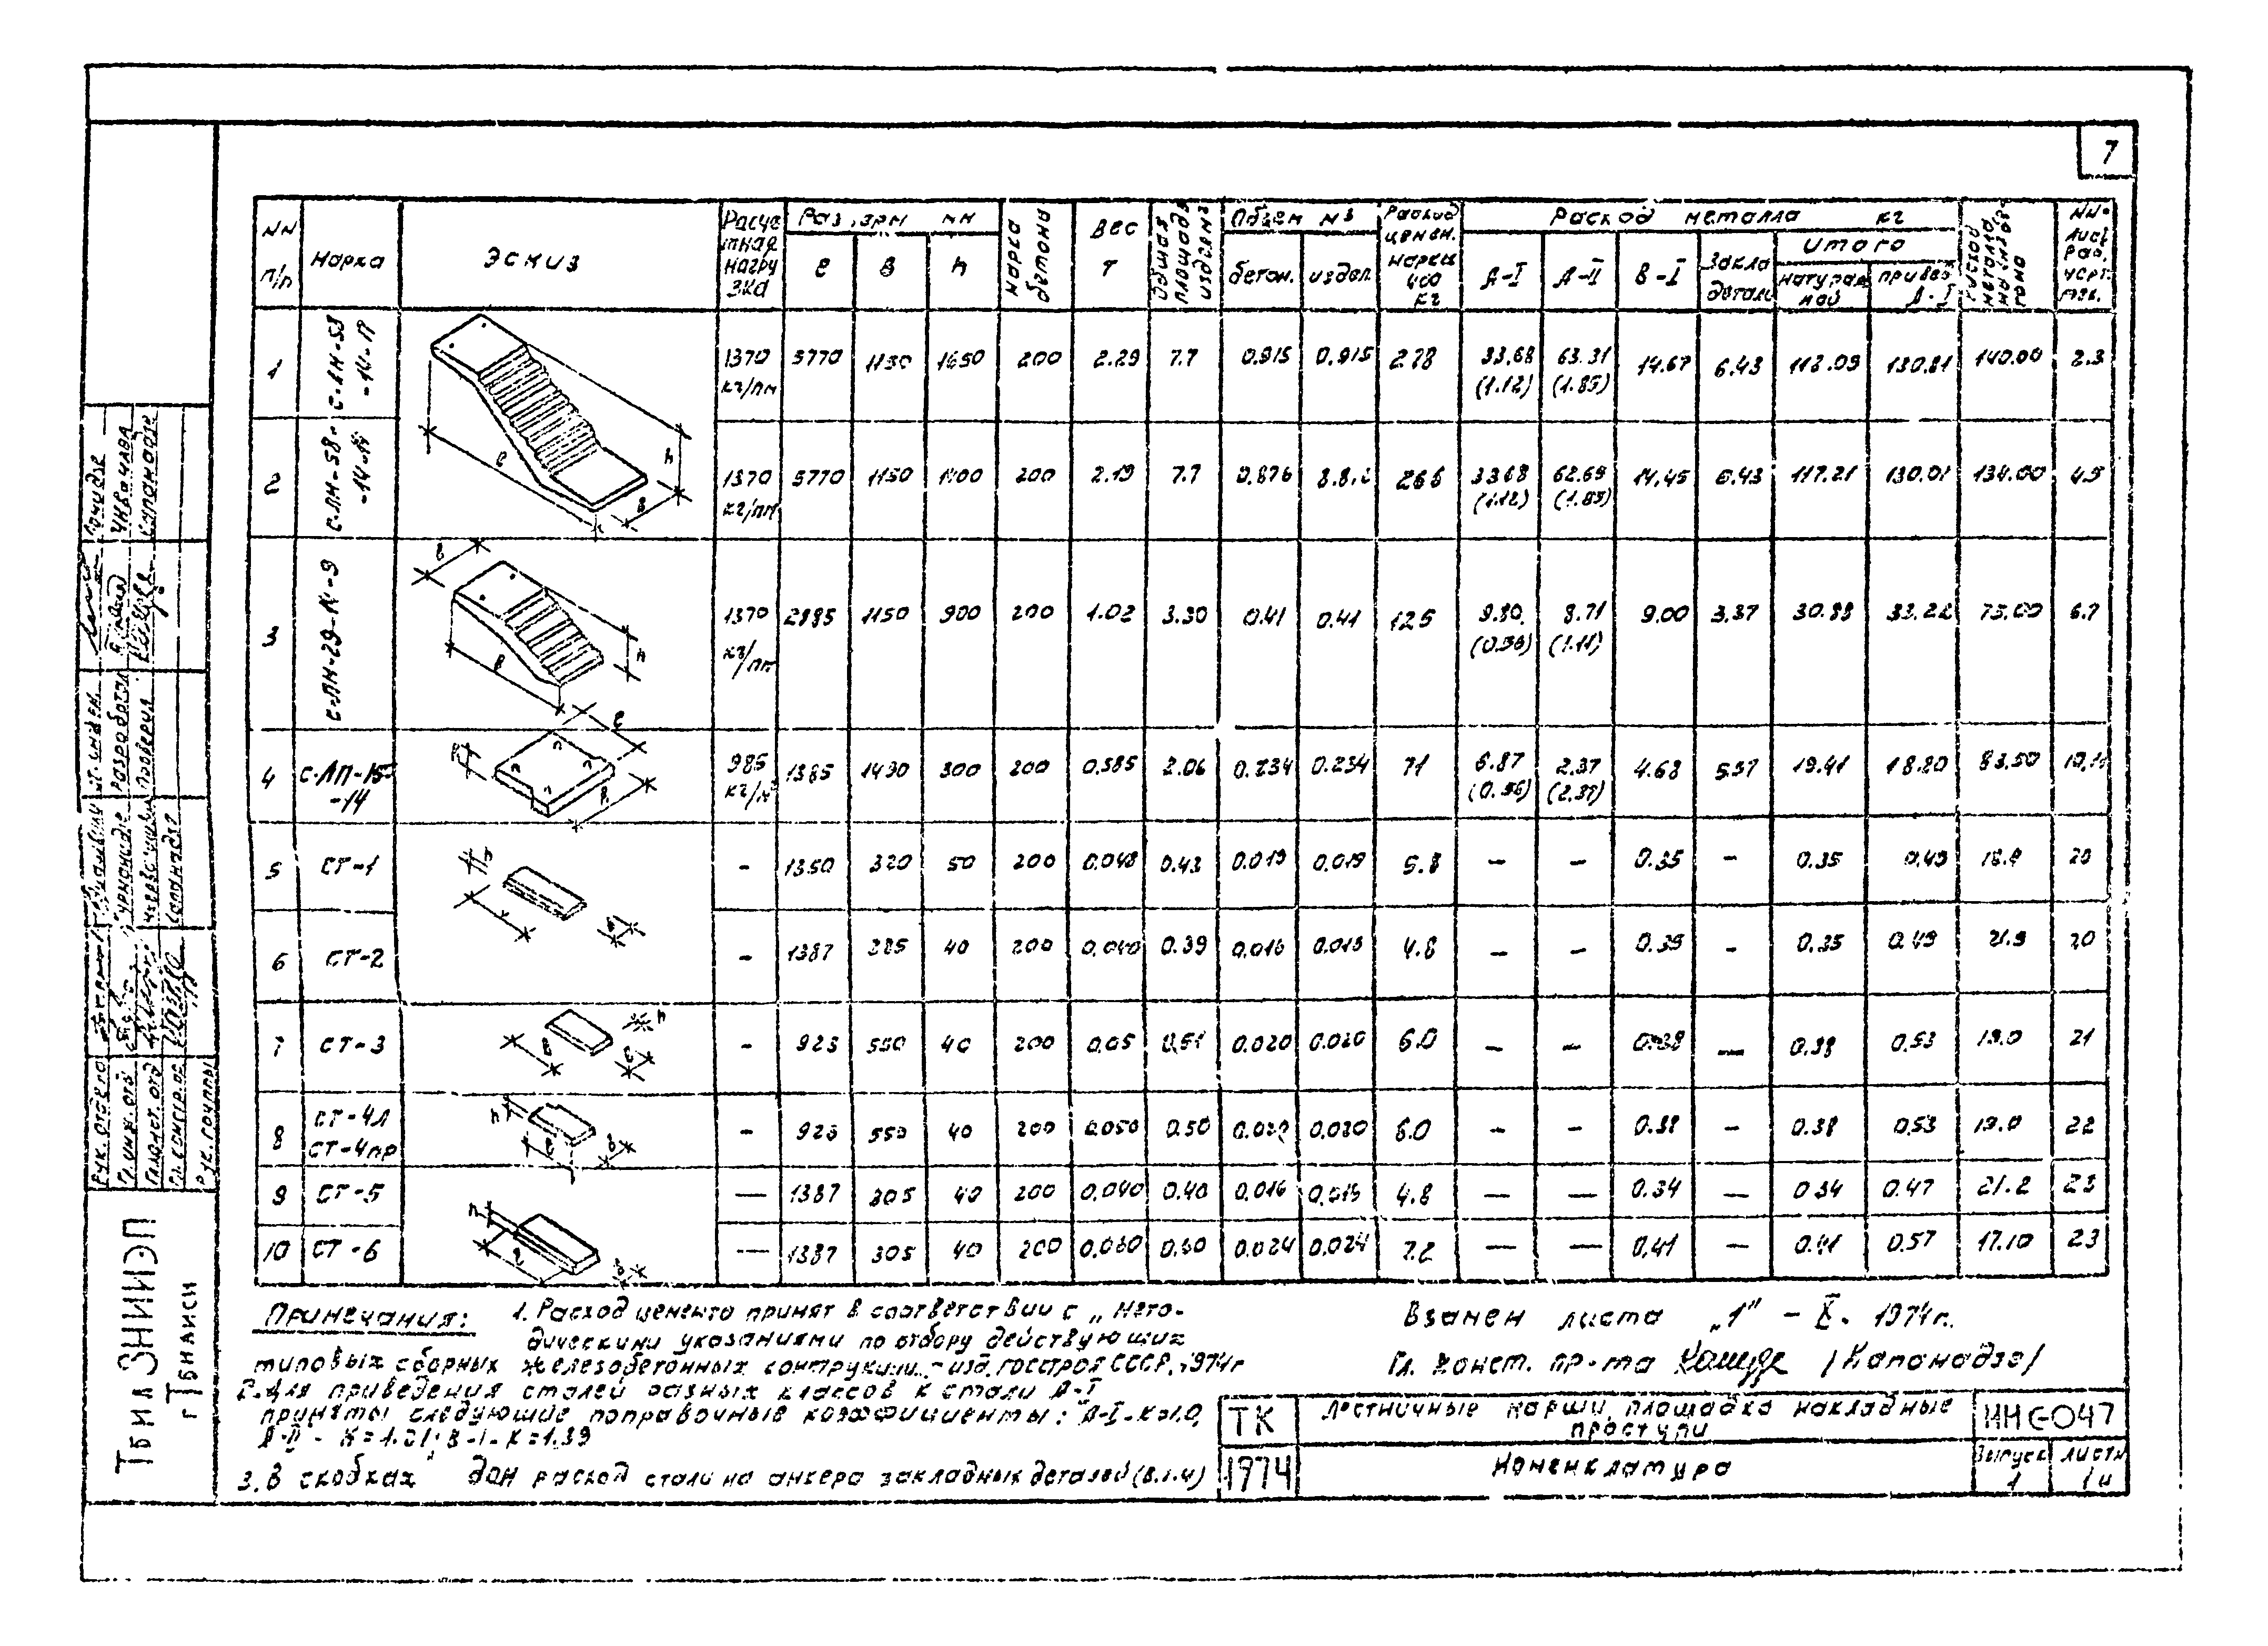 7
NN п/п | Марка | Эскиз | Расчетная нагрузка | Размеры мм | Марка бетона | Вес т | Общая площадь изделия | Объем м3 | Расход цемен. марки 400 кг | Расход металла кг | Расход металла на бетона | NN лист. раб. черт.
l | B | h | бетон. | издел. | А-I | А-II | В-I | Закла детали | Итого | натурал ной | привед А-I
1 | -14-17 | 1370 кг/пм | 5770 | 1150 | 1650 | 200 | 2.29 | 7.7 | 0.915 | 0.915 | 278 | 33.68 (1.12) | 63.31 (1.85) | 14.67 | 6.43 | 118.09 | 130.81 | 140.00 | 2.3
2 | С-ЛМ-58- -14-14 | 1370 кг/пм | 5770 | 1150 | 200 | 2.19 | 7.7 | 0.876 | 266 | 33.68 (1.12) | 62.65 (1.85) | 14.45 | 6.43 | 117.21 | 130.01 | 134.00 | 4.5
3 | С-ЛМ-29-14-9 | 1370 кг/пм | 2885 | 1150 | 900 | 200 | 1.02 | 3.30 | 0.41 | 0.41 | 125 | 9.80 (0.56) | 8.71 (1.11) | 9.00 | 3.37 | 30.88 | 33.22 | 75.00 | 6.7
4 | С-ЛП-15- -14 | 985 кг/м² | 1385 | 1490 | 300 | 200 | 0.585 | 2.06 | 0.234 | 0.234 | 71 | 6.87 (0.56) | 2.37 (2.37) | 4.68 | 5.57 | 19.41 | 18.20 | 83.50
5 | СТ-1 | - | 1350 | 320 | 50 | 200 | 0.048 | 0.43 | 0.019 | 0.019 | 5.8 | - | - | 0.35 | - | 0.35 | 0.49 | 20
6 | СТ-2 | - | 1387 | 285 | 40 | 200 | 0.040 | 0.39 | 0.016 | 0.016 | 4.8 | - | - | 0.35 | - | 0.35 | 0.49 | 21.9 | 20
7 | СТ-3 | - | 925 | 550 | 40 | 200 | 0.05 | 0.51 | 0.020 | 0.020 | 6.0 | - | - | 0.38 | - | 0.38 | 0.53 | 19.0 | 21
8 | СТ-4Л СТ-4пр | - | 925 | 550 | 40 | 200 | 0.050 | 0.50 | 0.020 | 0.020 | 6.0 | - | - | 0.38 | - | 0.38 | 0.53 | 19.0 | 22
9 | СТ-5 | — | 1387 | 305 | 40 | 200 | 0.040 | 0.40 | 0.016 | 0.016 | 4.8 | — | — | 0.34 | — | 0.34 | 0.47 | 21.2 | 23
10 | СТ-6 | — | 1387 | 305 | 40 | 200 | 0.060 | 0.60 | 0.024 | 0.024 | 7.2 | — | — | 0.41 | — | 0.41 | 0.57 | 17.10 | 23
Примечания: 1. Расход цемента принят в соответствии с „Мето-
дическими указаниями по отбору действующих
типовых сборных железобетонных конструкции..- изд. госстроя СССР, 1974г
2. Для приведения сталей разных классов к стали А-I
приняты следующие поправочные коэффициенты: А-I-К=1.0,
А-II - К=1.21; В-I- К=1.39
3. В скобках дан расход стали на анкера закладных деталей (в.т.ч)
Взамен листа „1" - X. 1974г.
Гл. конст. пр-та /Капанадзе/
ТК
1974
Лестничные марши, площадка накладные
проступи
Номенклатура
ИИ6-047
Выпуск
1
листы
1н
Рук. отдела
Гл. инж. отд
Гл. конст. отд
Гл. констр. ос
Рук. группы
Ст. инжен.
Разработал
Проверил
Капанадзе
Капанадзе
ТбилЗНИИЭП
г Тбилиси